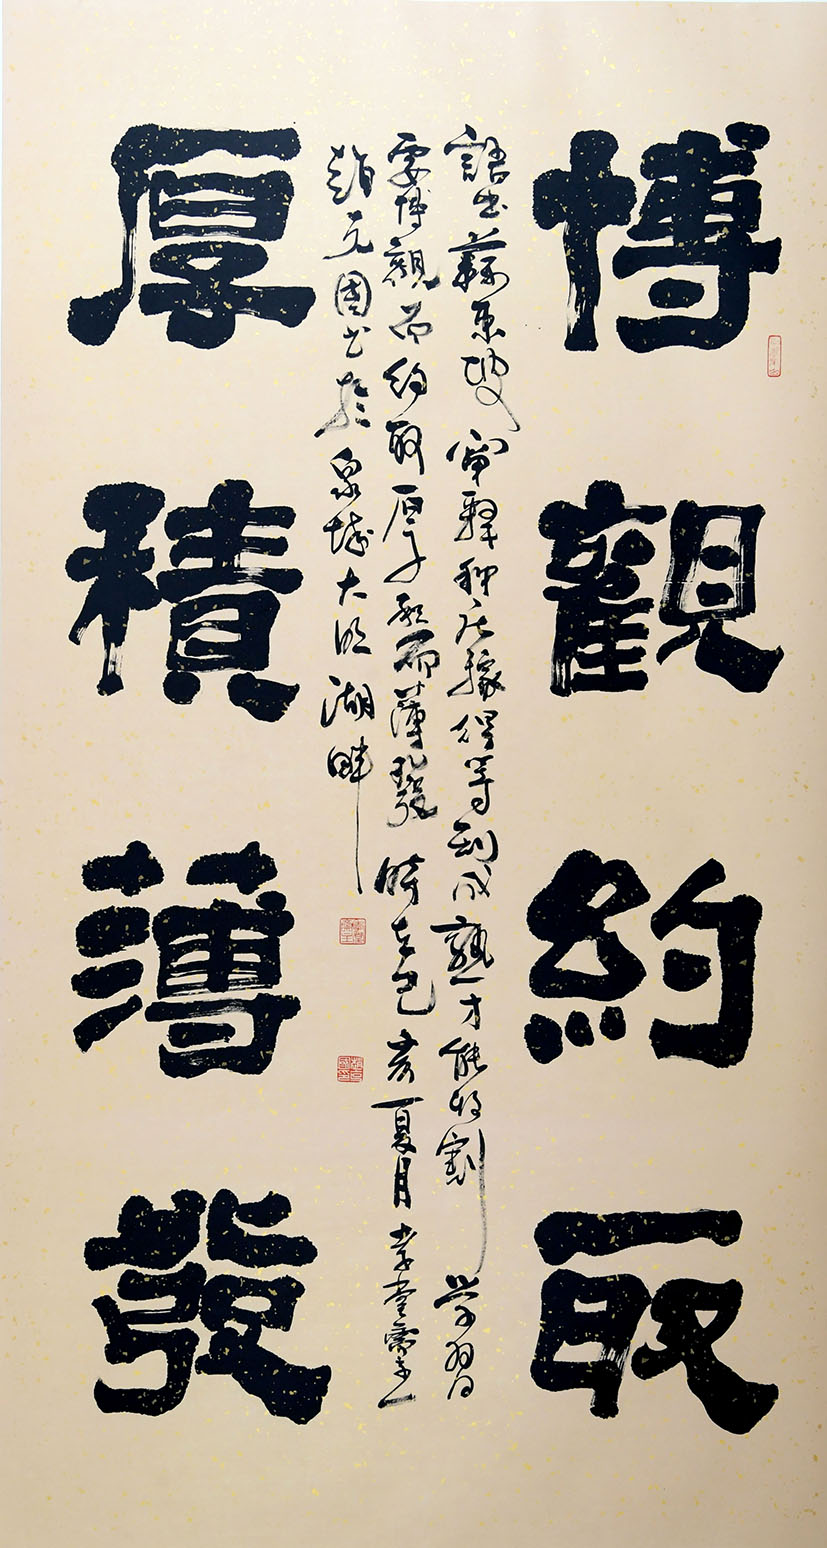 博觀約取
厚積薄發
語出蘇東坡 審釋種庄稼得等到成熟才能收割 学習
要博觀而約取厚積而薄發 時在己亥夏月
趙元國書於泉城大明湖畔